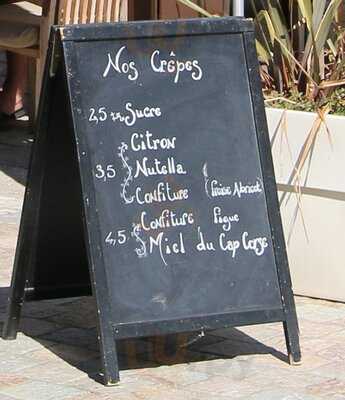 Nos Crêpes
2,5 Sucre
Citron
3,5 Nutella
Confiture (Fraise Abricot)
Confiture Figue
4,5 Miel du Cap Corse